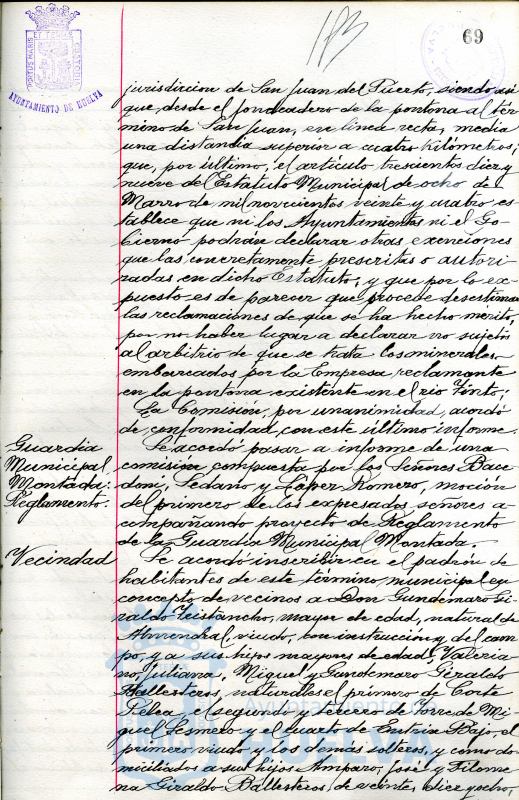 PORTUS MARIS ET TERRAE CUSTODIA
AYUNTAMIENTO DE HUELVA
69
jurisdiccion de San Juan del Puerto, siendo asi
que, desde el fondeadero de la pontona al tér-
mino de San Juan, en linea recta, media
una distancia superior a cuatro kilómetros;
que, por último, el artículo trescientos diez y
nueve del Estatuto Municipal de ocho de
Marzo de mil novecientos veinte y cuatro es-
tablece que ni los Ayuntamientos ni el Go-
bierno podrán declarar otras exenciones
que las concretamente prescritas o autori-
zadas en dicho Estatuto; y que por lo ex-
puesto es de parecer que procede desestimar
las reclamaciones de que se ha hecho mérito,
por no haber lugar a declarar no sujetos
al arbitrio de que se trata los minerales
embarcados por la Empresa reclamante
en la pontona existente en el rio Tinto;
La Comision, por unanimidad, acordó
de conformidad con este último informe.
Guardia
Municipal
Montada:
Reglamento.
Se acordó pasar a informe de una
comision compuesta por los Señores
Cedano y López Romero, moción
del primero de los expresados señores a-
compañando proyecto de Reglamento
de la Guardia Municipal Montada.
Vecindad
Se acordó inscribir en el padrón de
habitantes de este término municipal en
concepto de vecinos a Don Gundemaro Gi-
raldo Tristancho, mayor de edad, natural de
Almendral, viudo, con instruccion y del cam-
po, y a sus hijos mayores de edad, Valeria-
no, Juliana, Miguel y Gundemaro Giraldo
Ballesteros, naturales el primero de Corte
Pelea, el segundo y tercero de Torre de Mi-
guel Sesmero y el cuarto de Entrin Bajo, el
primero viudo y los demás solteros, y como do-
miciliados a sus hijos Amparo, José y Filome-
na Giraldo Ballesteros, de veinte, diez y ocho,
Ayuntamiento de
HUELVA